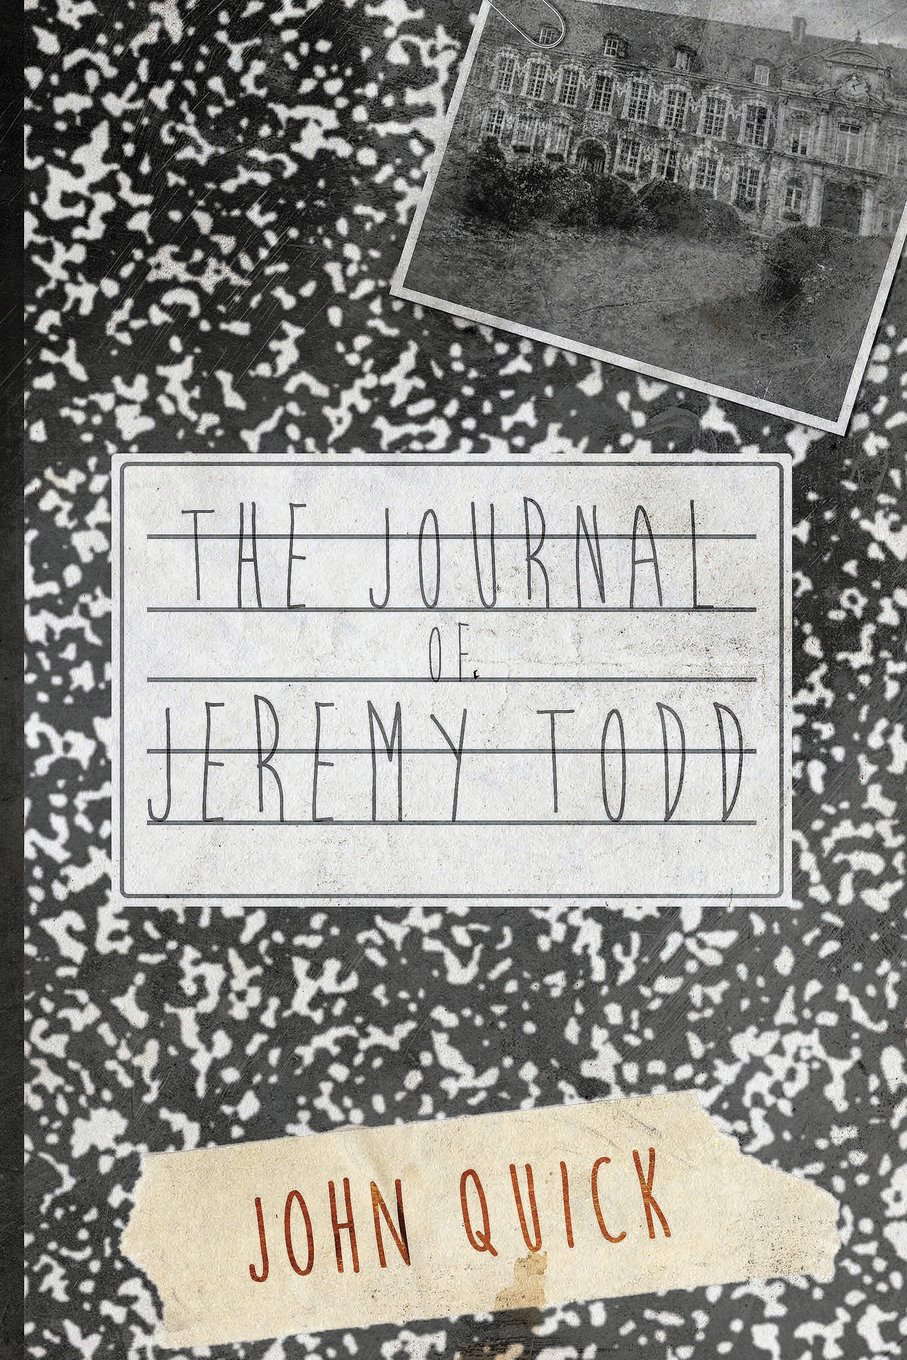 THE JOURNAL
OF
JEREMY TODD
JOHN QUICK